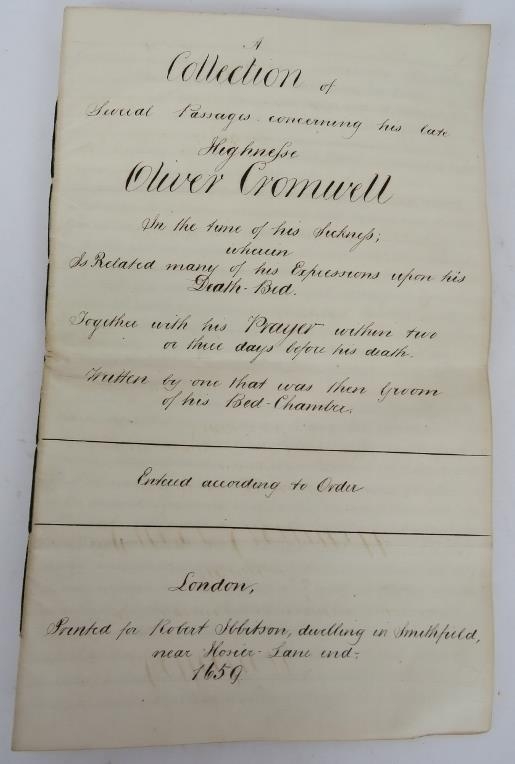 A
Collection of
Several Passages concerning his late
Highneſse
Oliver Cromwell
In the time of his Sickneſs;
wherein
Is Related many of his Expressions upon his
Death-Bed.
Together with his Prayer within two
or three days before his death.
Written by one that was then Groom
of his Bed-Chamber.
Entered according to Order
London,
Printed for Robert Ibbitson, dwelling in Smithfield,
near Hosier-Lane end.
1659